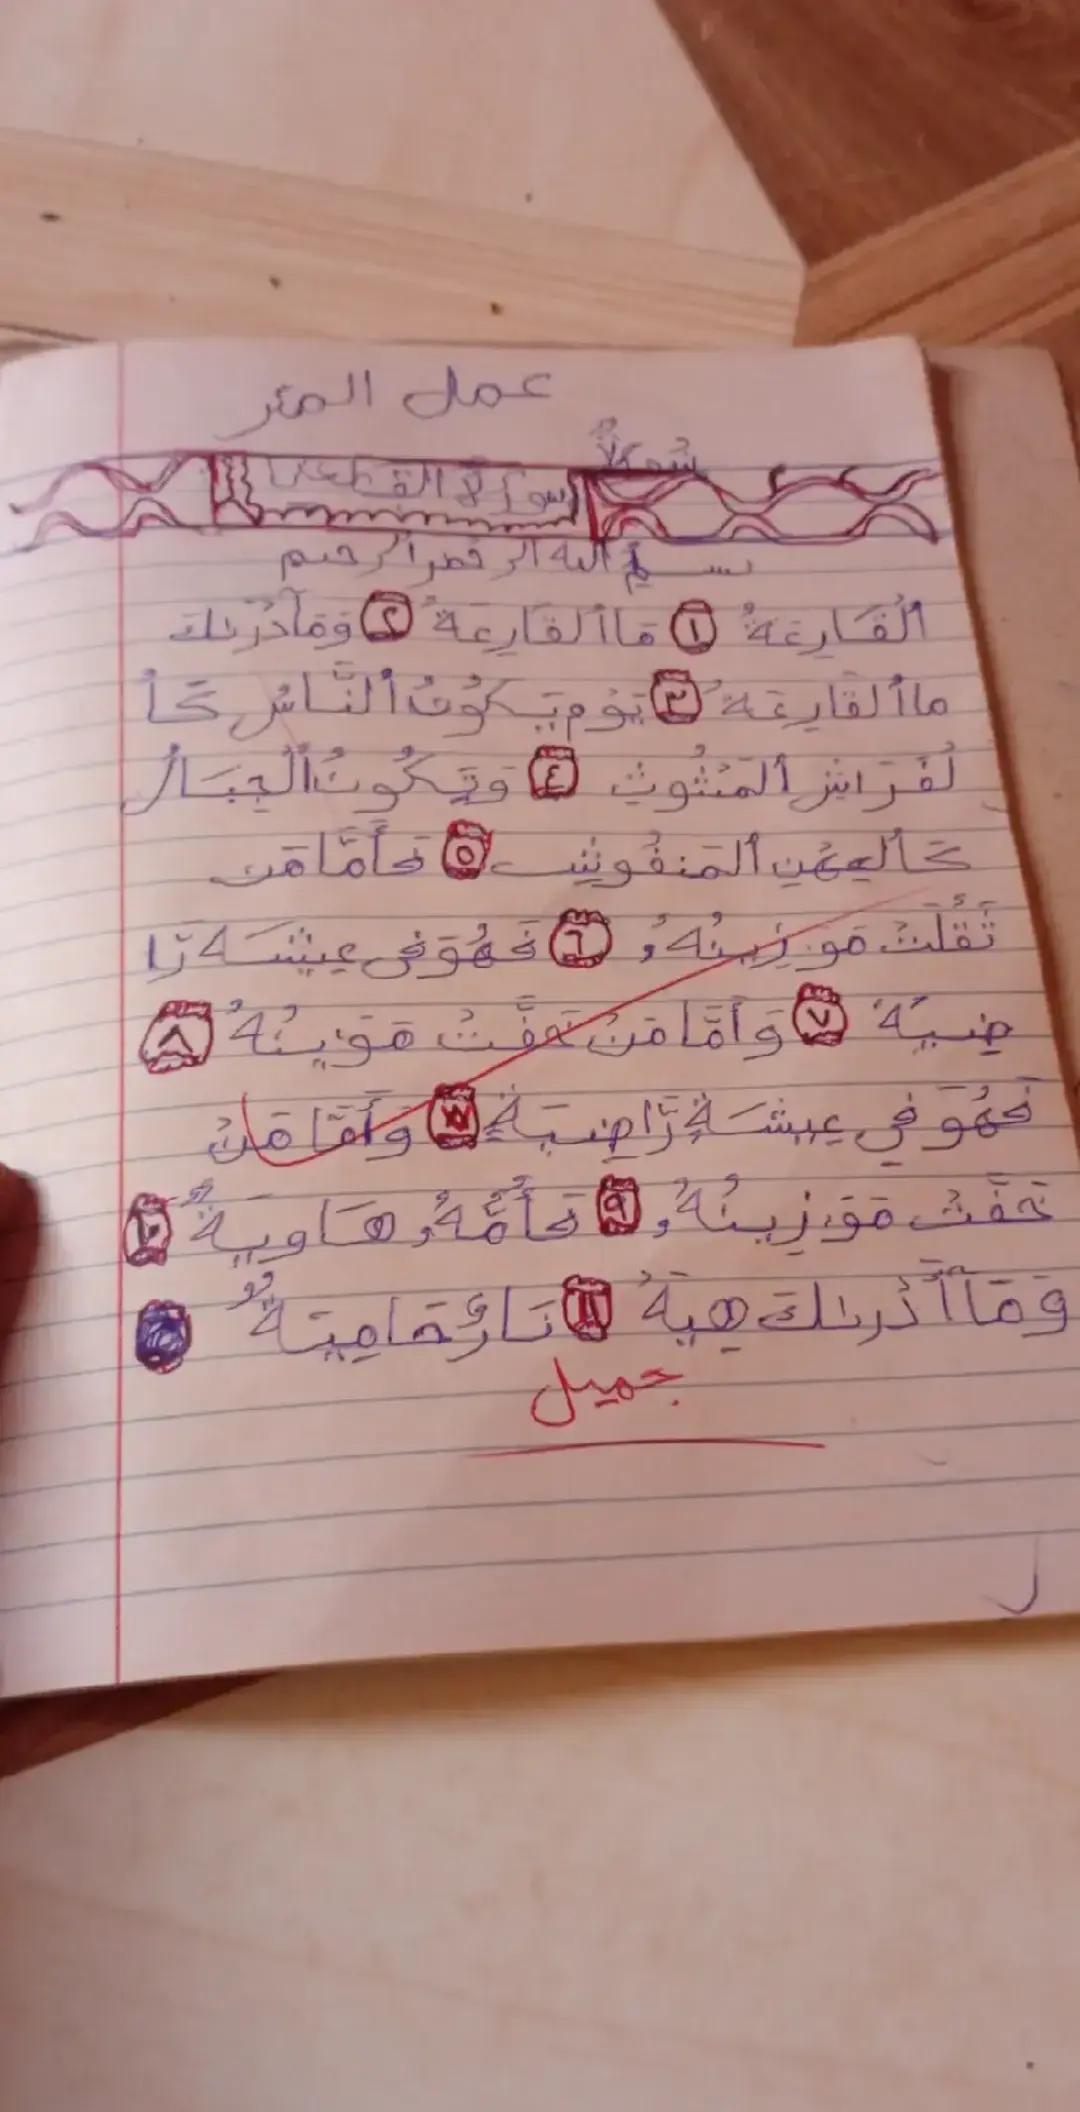 عمل المنر
سورة القارعة
بسم الله الرحمن الرحيم
ٱلْقَارِعَةُ ١ مَا ٱلْقَارِعَةُ ٢ وَمَآ أَدْرَىٰكَ
ما ٱلْقَارِعَةُ ٣ يَوْمَ يَكُونُ ٱلنَّاسُ كَٱ
لْفَرَاشِ ٱلْمَبْثُوثِ ٤ وَتَكُونُ ٱلْجِبَالُ
كَٱلْعِهْنِ ٱلْمَنفُوشِ ٥ فَأَمَّا مَن
ثَقُلَتْ مَوَزِينُهُۥ ٦ فَهُوَ فِى عِيشَةٍ رَّا
ضِيَةٍ ٧ وَأَمَّا مَنْ خَفَّتْ مَوَزِينُهُ ٨
فَهُوَ فِي عِيشَةٍ رَّاضِيَةٍ وَأَمَّا مَنْ
خَفَّتْ مَوَزِينُهُۥ ٩ فَأُمُّهُۥ هَاوِيَةٌ ١٠
وَمَآ أَدْرَىٰكَ هِيَهْ ١١ نَارٌ حَامِيَةٌ
جميل